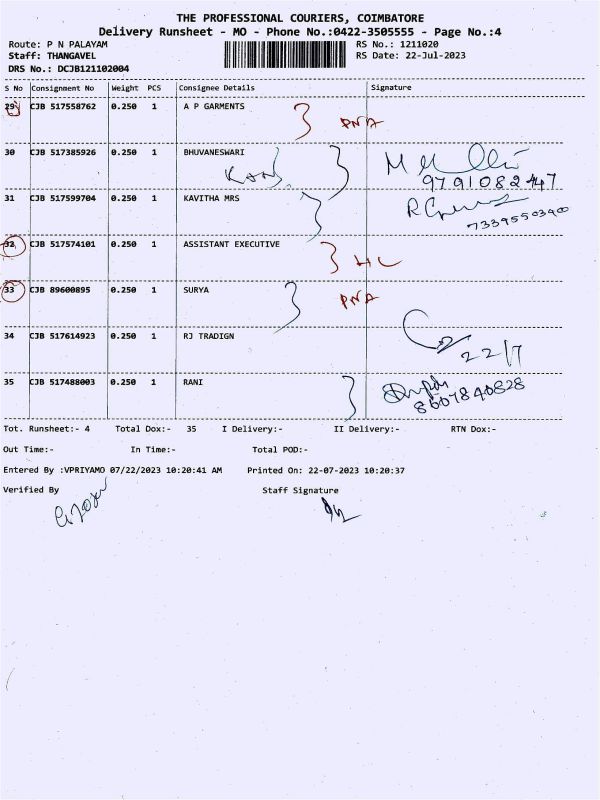 THE PROFESSIONAL COURIERS, COIMBATORE
Delivery Runsheet - MO - Phone No.:0422-3505555 - Page No.:4
Route: P N PALAYAM RS No.: 1211020
Staff: THANGAVEL RS Date: 22-Jul-2023
DRS No.: DCJB121102004
S No Consignment No Weight PCS Consignee Details Signature
29 CJB 517558762 0.250 1 A P GARMENTS
PNA
30 CJB 517385926 0.250 1 BHUVANESWARI
9791082447
31 CJB 517599704 0.250 1 KAVITHA MRS
7339550390
32 CJB 517574101 0.250 1 ASSISTANT EXECUTIVE
HC
33 CJB 89600895 0.250 1 SURYA
PNA
34 CJB 517614923 0.250 1 RJ TRADIGN
22/7
35 CJB 517488003 0.250 1 RANI
8607840828
Tot. Runsheet:- 4 Total Dox:- 35 I Delivery:- II Delivery:- RTN Dox:-
Out Time:- In Time:- Total POD:-
Entered By :VPRIYAMO 07/22/2023 10:20:41 AM Printed On: 22-07-2023 10:20:37
Verified By Staff Signature